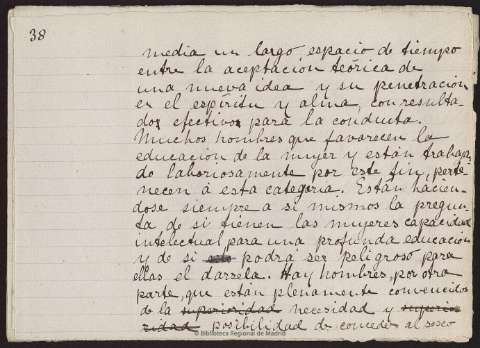 38
media un largo espacio de tiempo
entre la aceptación teórica de
una nueva idea y su penetración
en el espíritu y alma, con resulta-
dos efectivos para la conducta.
Muchos hombres que favorecen la
educación de la mujer y están trabajan
do laboriosamente por este fin, perte
necen á esta categoría. Están hacien-
dose siempre a sí mismos la pregun
ta de si tienen las mujeres capacidad
intelectual para una profunda educación
y de si podrá ser peligroso para
ellas el darsela. Hay hombres, por otra
parte, que están plenamente convencidos
de la superioridad necesidad y superio
ridad posibilidad de conceder al sexo
© Biblioteca Regional de Madrid